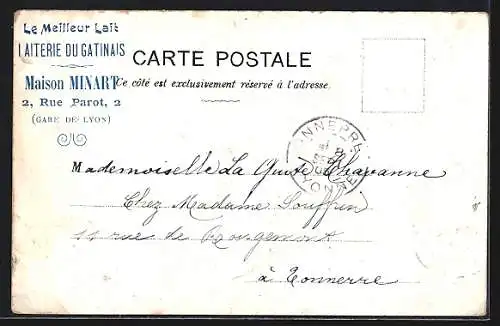 Le Meilleur Lait
LAITERIE DU GATINAIS
Maison MINART
2, Rue Parot, 2
(GARE DE LYON)
CARTE POSTALE
Ce côté est exclusivement réservé à l'adresse.
Mademoiselle La
Chez Madame Souffrin
11 rue de Rougemont
à Tonnerre